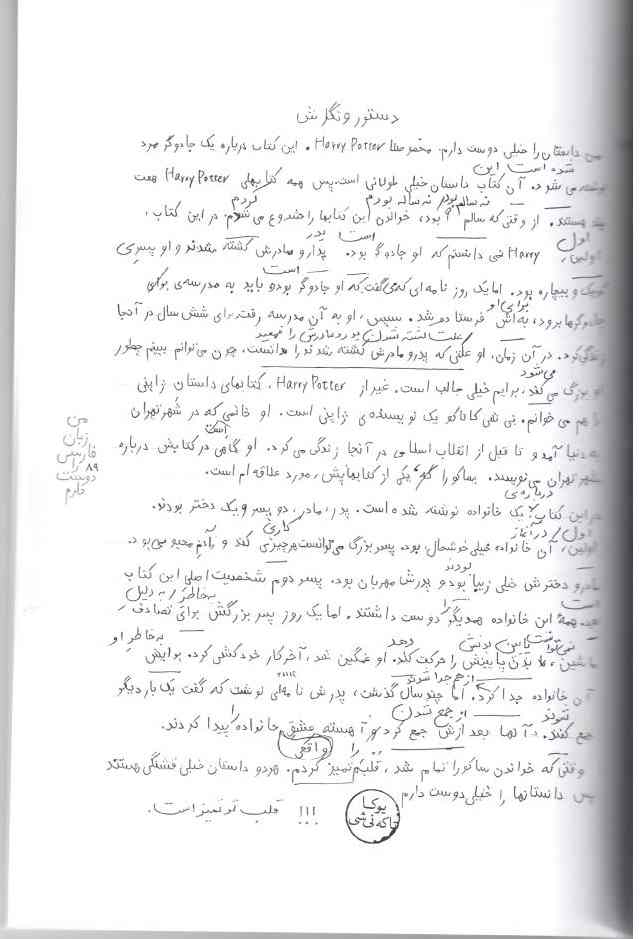 دستور و نگارش
من داستان را خیلی دوست دارم. مخصوصاً Harry Potter. این کتاب درباره یک جادوگر مرد
شده است این
نوشته می شود. آن کتاب داستان خیلی طولانی است. پس همه کتابهای Harry Potter هفت
نه ساله بودم نه ساله بودم کردم
جلد هستند. از وقتی که سالم ۹ بود، خواندن این کتابها را شروع می شدم. در این کتاب،
اول است پدر
اولین، Harry نمی دانستم که او جادوگر بود. پدار و مادرش کشته شدند و او پسری
است
کوچک و بیچاره بود. اما یک روز نامه ای که می گفت که او جادوگر بود و باید به مدرسه ی برای
برای او
جادوگرها برود، به اش فرستاده شد. سپس، او به آن مدرسه رفت برای شش سال در آنجا
علت کشته شدن پدر و مادرش را فهمید
زندگی کرد. در آن زمان، او علتی که پدر و مادرش کشته شدند را دانست. چون می توانم ببینم چطور
می شود
او بزرگ می کند، برایم خیلی جالب است. غیر از Harry Potter، کتابهای داستان ژاپنی
را هم می خوانم. نی شی کاناکو یک نویسنده ی ژاپنی است. او خانمی که در شهر تهران
است
به دنیا آمد و تا قبل از انقلاب اسلامی در آنجا زندگی می کرد. او گاهی در کتابش درباره
شهر تهران می نویسد. ساکورا گم، یکی از کتابهایش، مورد علاقه ام است.
درباره ی
در این کتاب یک خانواده نوشته شده است. پدر، مادر، دو پسر و یک دختر بودند.
اول / در آغاز کاری
اولین، آن خانواده خیلی خوشحال بود. پسر بزرگ می توانست هر چیزی کند و آدم محبوبی بود.
بودند
مادر و دخترش خیلی زیبا بود و پدرش مهربان بود. پسر دوم شخصیت اصلی این کتاب
است را بخاطرِ / به دلیل
همه این خانواده همدیگر دوست داشتند. اما یک روز پسر بزرگش برای تصادف
نمی توانست پایین بدنش دهد به خاطرِ او
ماشین، بدن پایینش را حرکت کند. او غمگین شد، آخر کار خودکشی کرد. برایش
از هم جدا شوند
آن خانواده جدا کرد. اما چند سال گذشت، پدرش نامه ای نوشت که گفت یک بار دیگر
شوند از جمع شدن را
جمع کنند. آنها بعد ازش جمع کردند و آهسته عشق خانواده پیدا کردند.
واقعی را
وقتی که خواندن ساکورا تمام شد، قلبم تمیز کردم. هر دو داستان خیلی قشنگی هستند
پس داستانها را خیلی دوست دارم
یوکا
تاکه نی شی
!!! قلب تو تمیز است.
من
زبان
فارسی
را ۸۹
دوست
دارم